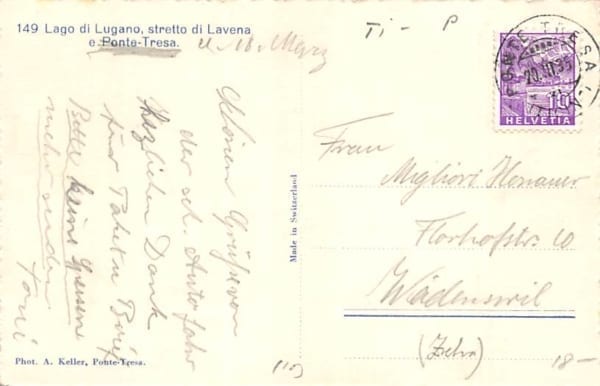 149 Lago di Lugano, stretto di Lavena
e Ponte-Tresa.
d. 18. März
Ti - P
PONTE TRESA
20.III.35
10
HELVETIA
Schönen Gruss von
der sch. Autofahr
Herzlichen Dank
für Paket u Brief
Bitte keine Speisen
mehr senden
Toni
Made in Switzerland
Frau
Migliori Honauer
Florhofstr. 10
Wädenswil
(Zch)
Phot. A. Keller, Ponte-Tresa.
18-